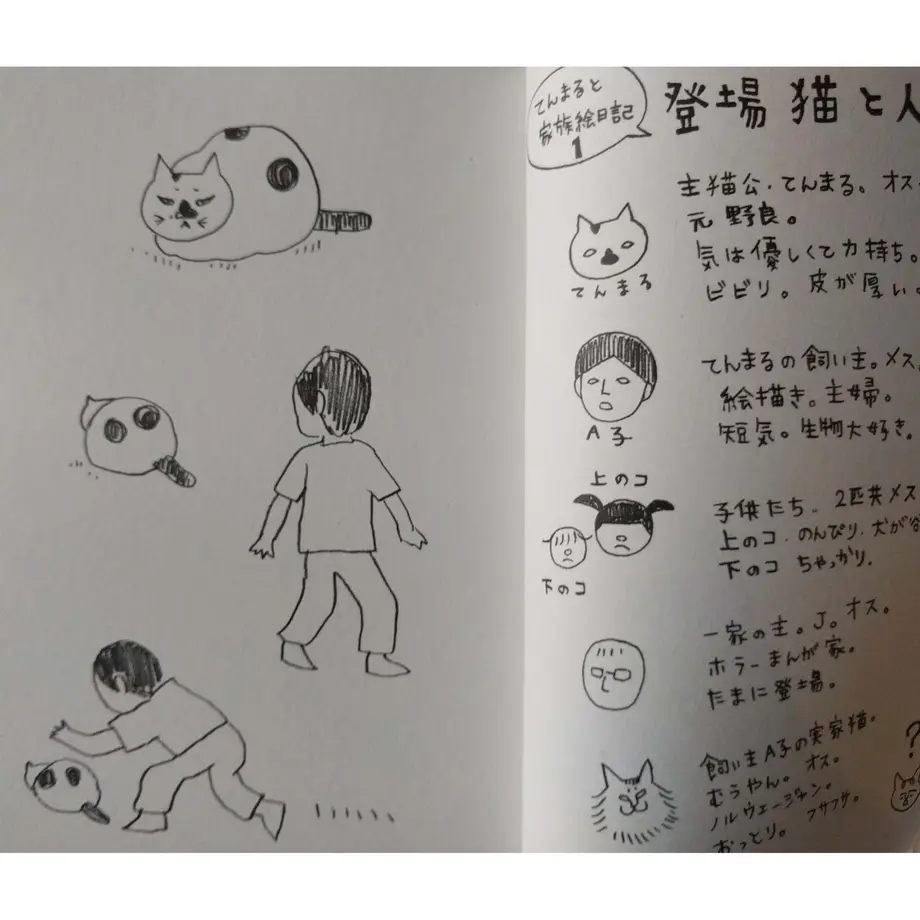 てんまると
家族絵日記
1
登場 猫と人
主猫公・てんまる。オス。
元野良。
気は優しくて力持ち。
ビビリ。皮が厚い。
てんまる
てんまるの飼い主。メス。
絵描き。主婦。
短気。生物大好き。
A子
上のコ
子供たち。2匹共メス
上のコ・のんびり・犬が
下のコ ちゃっかり。
下のコ
一家の主。J。オス。
ホラーまんが家。
たまに登場。
飼い主A子の実家猫。
むうやん。オス。
ノルウェージャン。フサフサ。
おっとり。
?